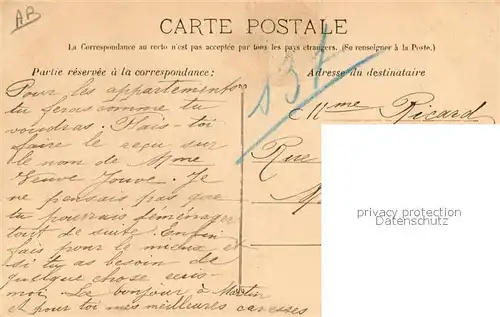 AB
CARTE POSTALE
La Correspondance au recto n'est pas acceptée par tous les pays étrangers. (Se renseigner à la Poste.)
Partie réservée à la correspondance:
Adresse du destinataire
137
Pour les appartements
tu feras comme tu
voudras. Fais-toi
faire le reçu sur
le nom de Mme
Veuve Jouve. Je
ne pensais pas que
tu pourrais déménager
tout de suite. Enfin
fais pour le mieux et
si tu as besoin de
quelque chose écris-
moi. Le bonjour à Martin
et pour toi mes meilleures caresses
Mme Ricard
Rue
privacy protection
www.oldthing.de